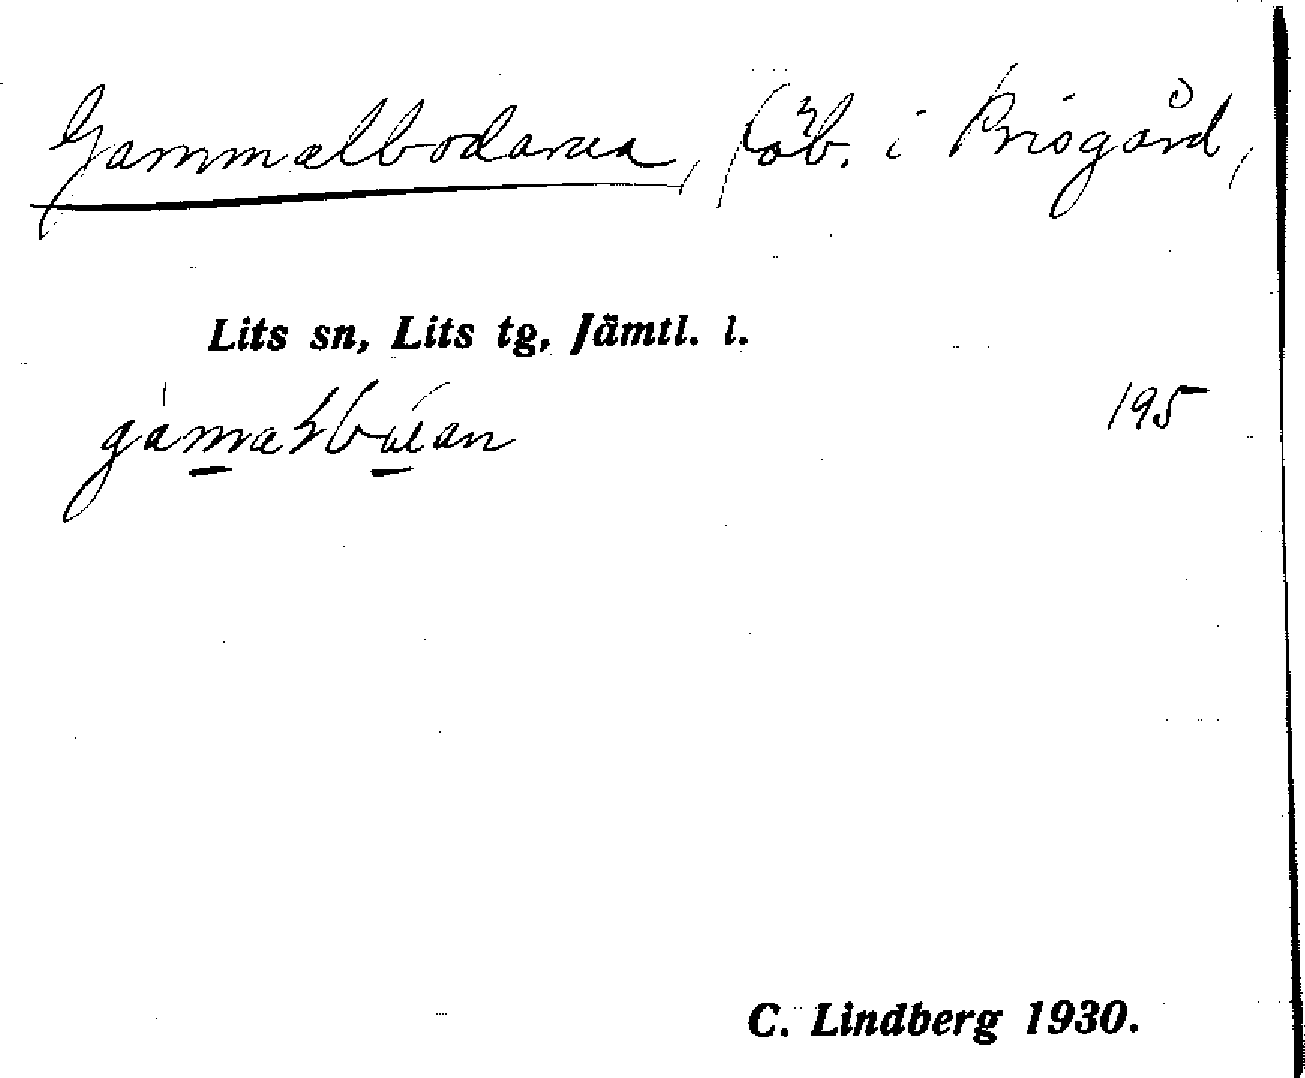 Gammelbodarna, föb. i Brisgård,
Lits sn, Lits tg, Jämtl. l.
195
C. Lindberg 1930.